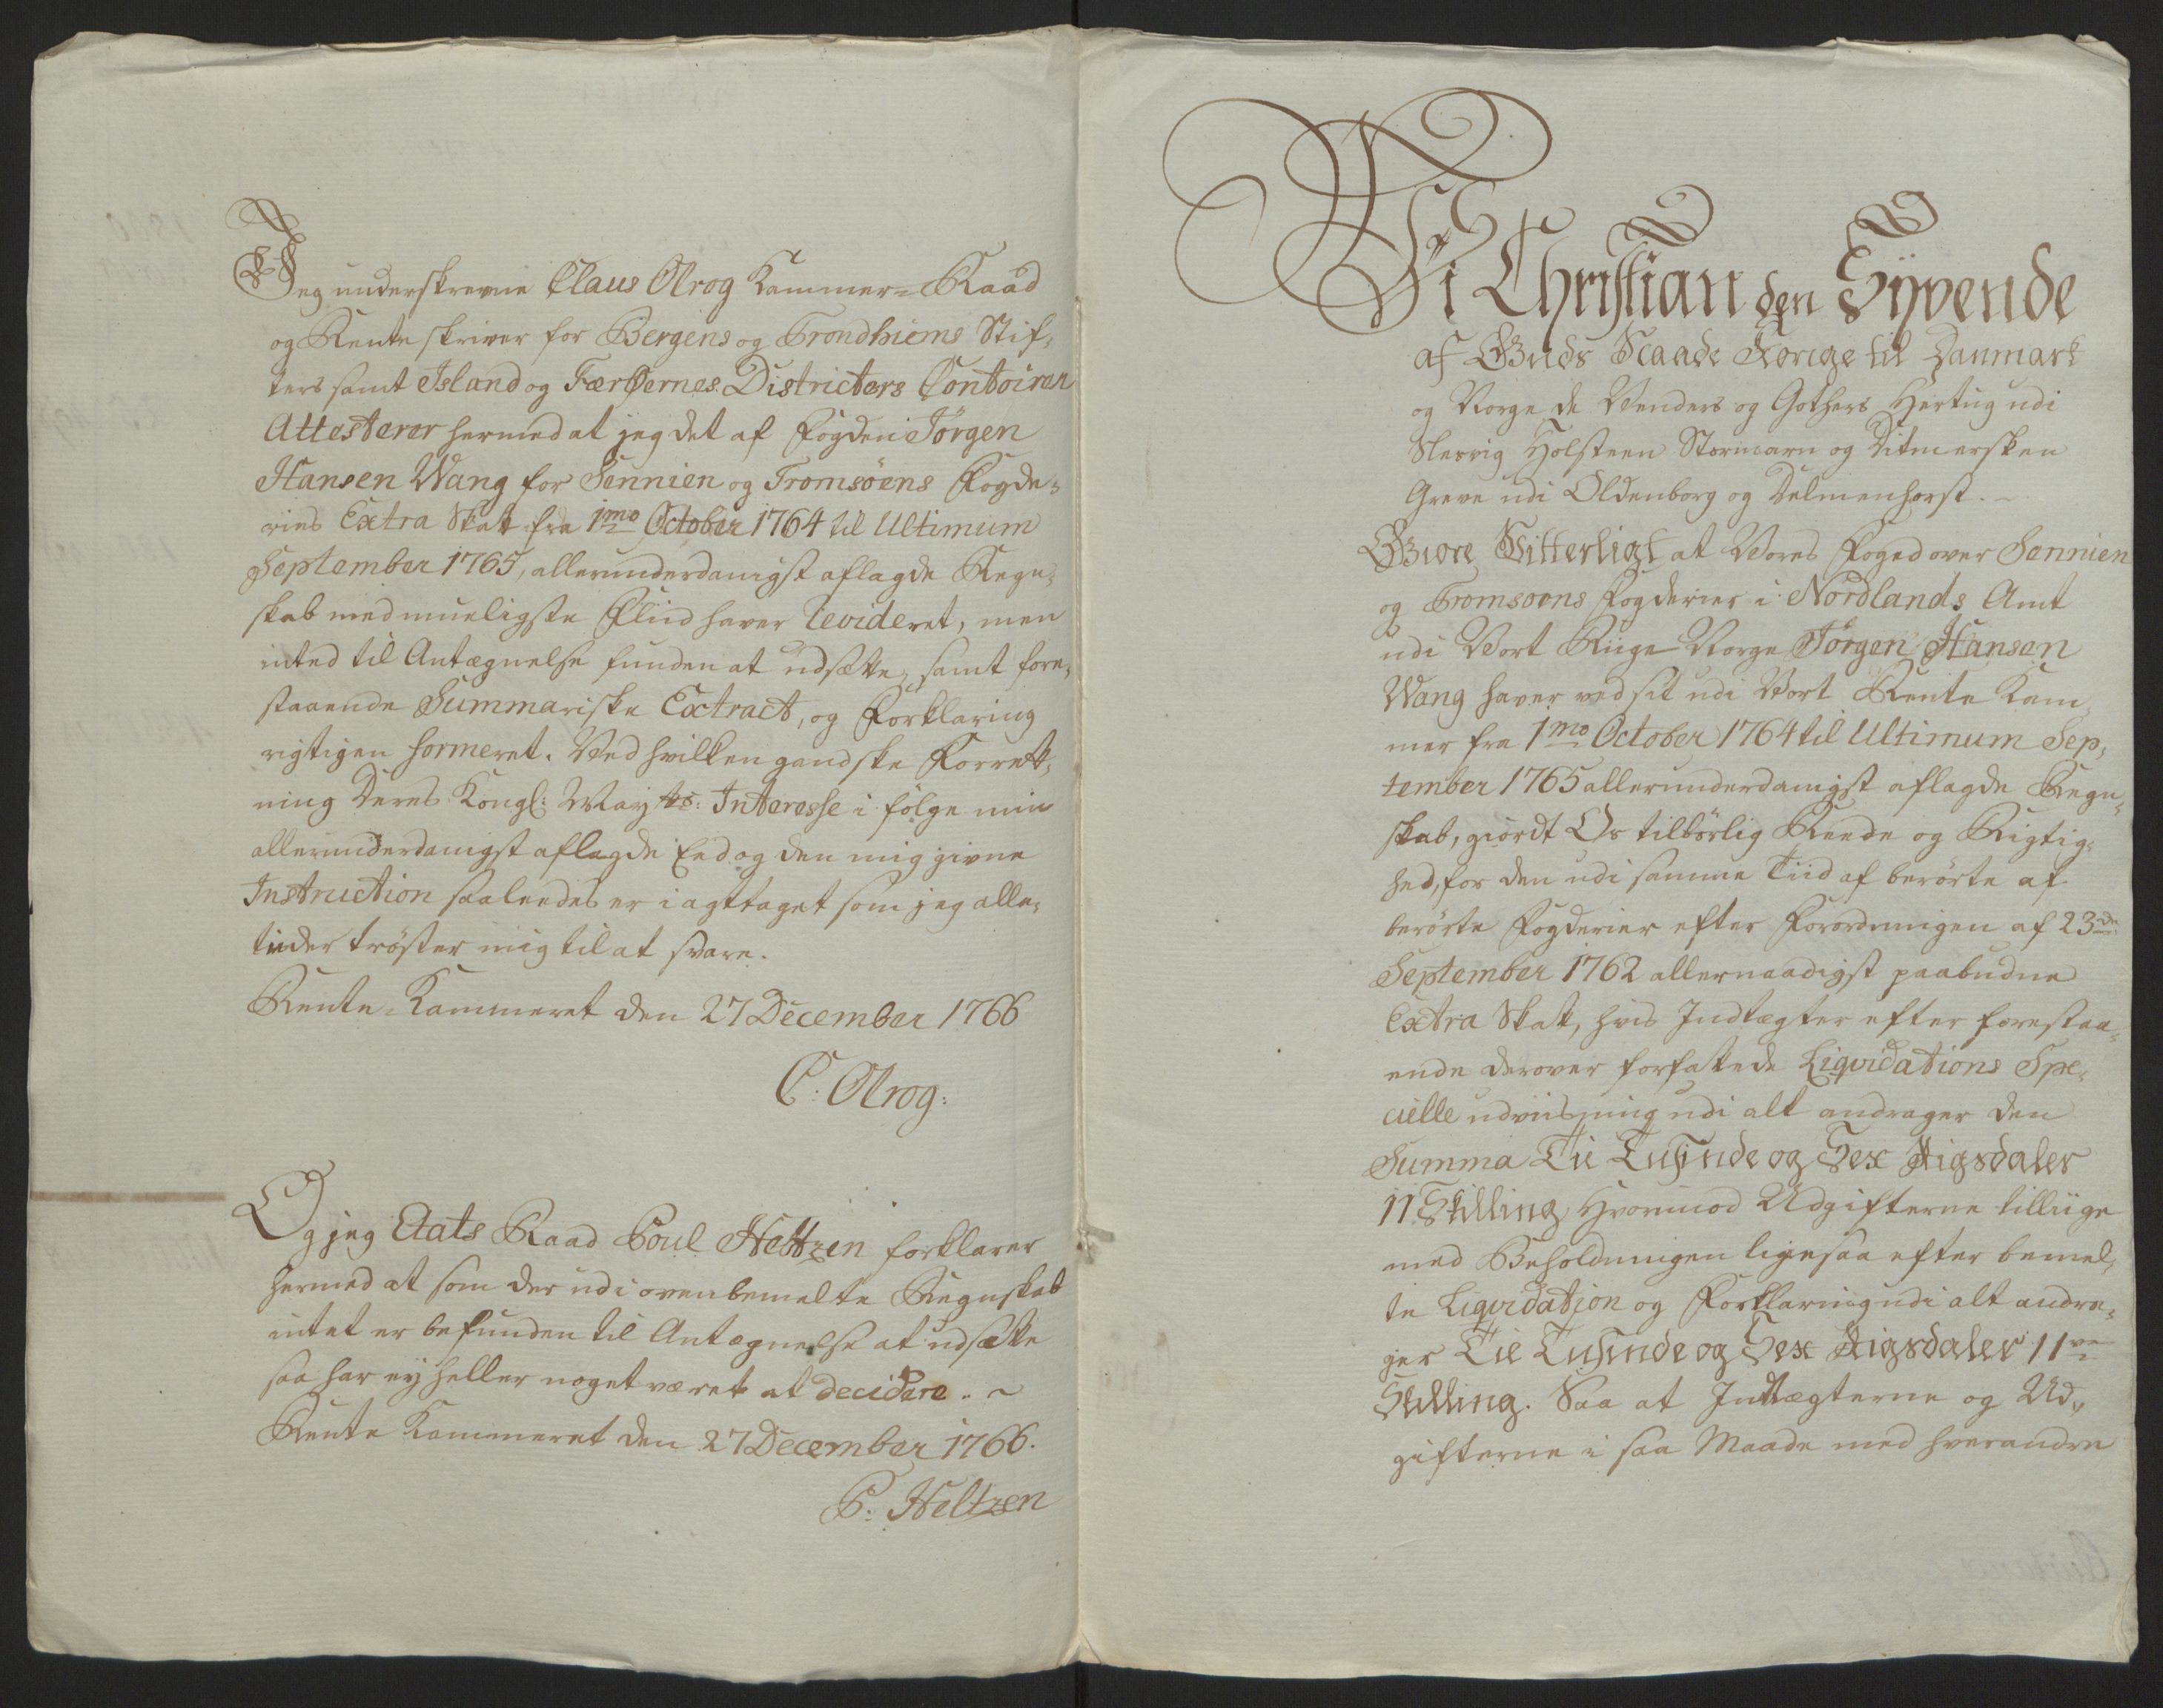 Jeg underskrevne Claus Olrog Kammer-Raad
og Renteskriver for Bergens og Trondhiems Stif,
ters samt Island og Færøernes Districters Contoirer
Attesterer hermed at jeg det af Fogden Jörgen
Hansen Wang for Sennien og Tromsöens Fogde-
ries Extra Skat fra 1mo October 1764 til Ultimum
September 1765, allerunderdanigst aflagde Regn-
skab med mueligste Fliid haver revideret, men
inted til Antægnelse funden at udsætte, samt fore,
staaende Summariske Extract, og Forklaring
rigtigen formeret. Ved hvilken gandske Forrett,
ning Deres Kongl: Mayts: Interesse i fölge min
allerunderdanigst aflagde Eed og den mig givne
Instruction saaledes er i agttaget som jeg alle,
tiider tröster mig til at svare.
Rente-Kammeret den 27 December 1766
C: Olrog:
Og jeg Etats Raad Poul Heltzen forklarer
hermed at som der udi ovenbemelte Regnskab
intet er befunden til Antægnelse at udsætte
saa har ey heller noget været at decidere. ~
Rente Kammeret den 27 December 1766.
P: Heltzen
Vi Christian den Syvende
af Guds Naade Konge til Danmark
og Norge de Venders og Gothers Hertug udi
Slesvig Holsteen Stormarn og Ditmersken
Greve udi Oldenborg og Delmenhorst. ~
Giöre Vitterligt at Vores Foged over Sennien
og Tromsoens Fogderier i Nordlands Amt
udi Vort Riige Norge Jörgen Hansen
Wang haver ved sit udi Vort Rente Kam,
mer fra 1mo October 1764 til Ultimum Sep,
tember 1765 allerunderdanigst aflagde Regn,
skab, giördt Os tilbörlig Reede og Rigtig,
hed, for den udi samme Tiid af berörte af
berörte Fogderier efter Forordningen af 23de
September 1762 allernaadigst paabudne
Extra Skat, hvis Indtægter efter forestaa,
ende derover forfattede Liqvidations Spe,
cielle udviisning udi alt andrager den
Summa Tie Tusinde og Sex Rigsdaler
11 Skilling, hvorimod Udgifterne tilliige
med Beholdningen ligesaa efter bemel,
te Liqvidation og Forklaring udi alt andra,
ger Tie Tusinde og Sex Rigsdaler 11ve
Skilling. Saa at Indtægterne og Ud,
gifterne i saa Maade med hverandre